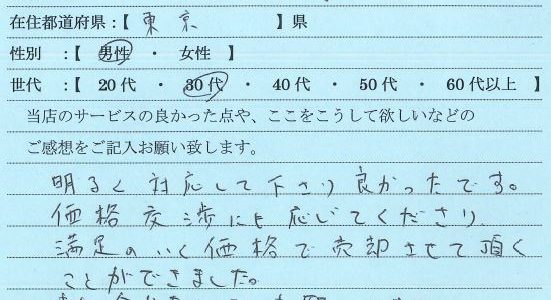 在住都道府県：【 東京 】県
性別 ：【 男性 ・ 女性 】
世代 ：【 20代 ・ 30代 ・ 40代 ・ 50代 ・ 60代以上 】
当店のサービスの良かった点や、ここをこうして欲しいなどの
ご感想をご記入お願い致します。
明るく対応して下さり良かったです。
価格交渉にも応じてくださり
満足のいく価格で売却させて頂く
ことができました。